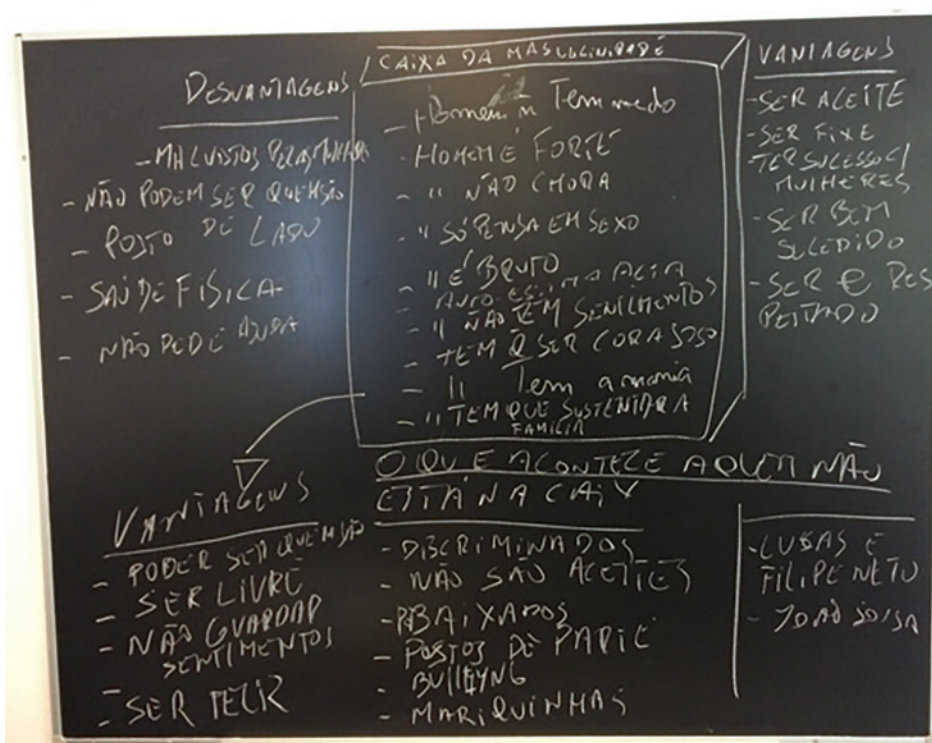 DESVANTAGENS
- MAL VISTOS PELAS MULHERES
- NÃO PODEM SER QUEM SÃO
- POSTO DE LADO
- SAÚDE FÍSICA
- NÃO PEDE AJUDA
CAIXA DA MASCULINIDADE
- Homem ñ Tem medo
- HOMEM É FORTE
- " NÃO CHORA
- " SÓ PENSA EM SEXO
- " É BRUTO
- AUTO-ESTIMA ALTA
- " NÃO TEM SENTIMENTOS
- TEM Q SER CORAJOSO
- " Tem a mania
- " TEM QUE SUSTENTAR A
FAMÍLIA
VANTAGENS
- SER ACEITE
- SER FIXE
TER SUCESSO C/
MULHERES
- SER BEM
SUCEDIDO
- SER RES
PEITADO
VANTAGENS
- PODER SER QUEM SÃO
- SER LIVRE
- NÃO GUARDAR
SENTIMENTOS
- SER FELIZ
O QUE ACONTECE A QUEM NÃO
ESTÁ NA CAIX
- DISCRIMINADOS
- NÃO SÃO ACEITES
- REBAIXADOS
- POSTOS DE PARTE
- BULLEYNG
- MARIQUINHAS
- LUCAS E
FILIPE NETO
- JOÃO SOUSA